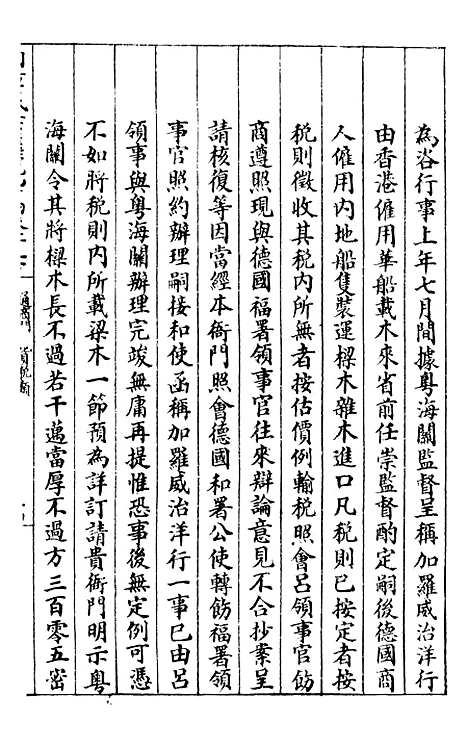 為咨行事上年七月間據粵海關監督呈稱加羅威治洋行
由香港僱用華船載木來省前任崇監督酌定嗣後德國商
人僱用內地船隻裝運樑木雜木進口凡稅則已按定者按
稅則徵收其稅內所無者按估價例輸稅照會呂領事官飭
商遵照現與德國福署領事官往來辯論意見不合抄案呈
請核復等因當經本衙門照會德國和署公使轉飭福署領
事官照約辦理嗣接和使函稱加羅威治洋行一事已由呂
領事與粵海關辦理完竣無庸再提惟恐事後無定例可憑
不如將稅則內所載梁木一節預為詳訂請貴衙門明示粵
海關令其將樑木長不過若干邁當厚不過方三百零五密
通商門 貨稅類